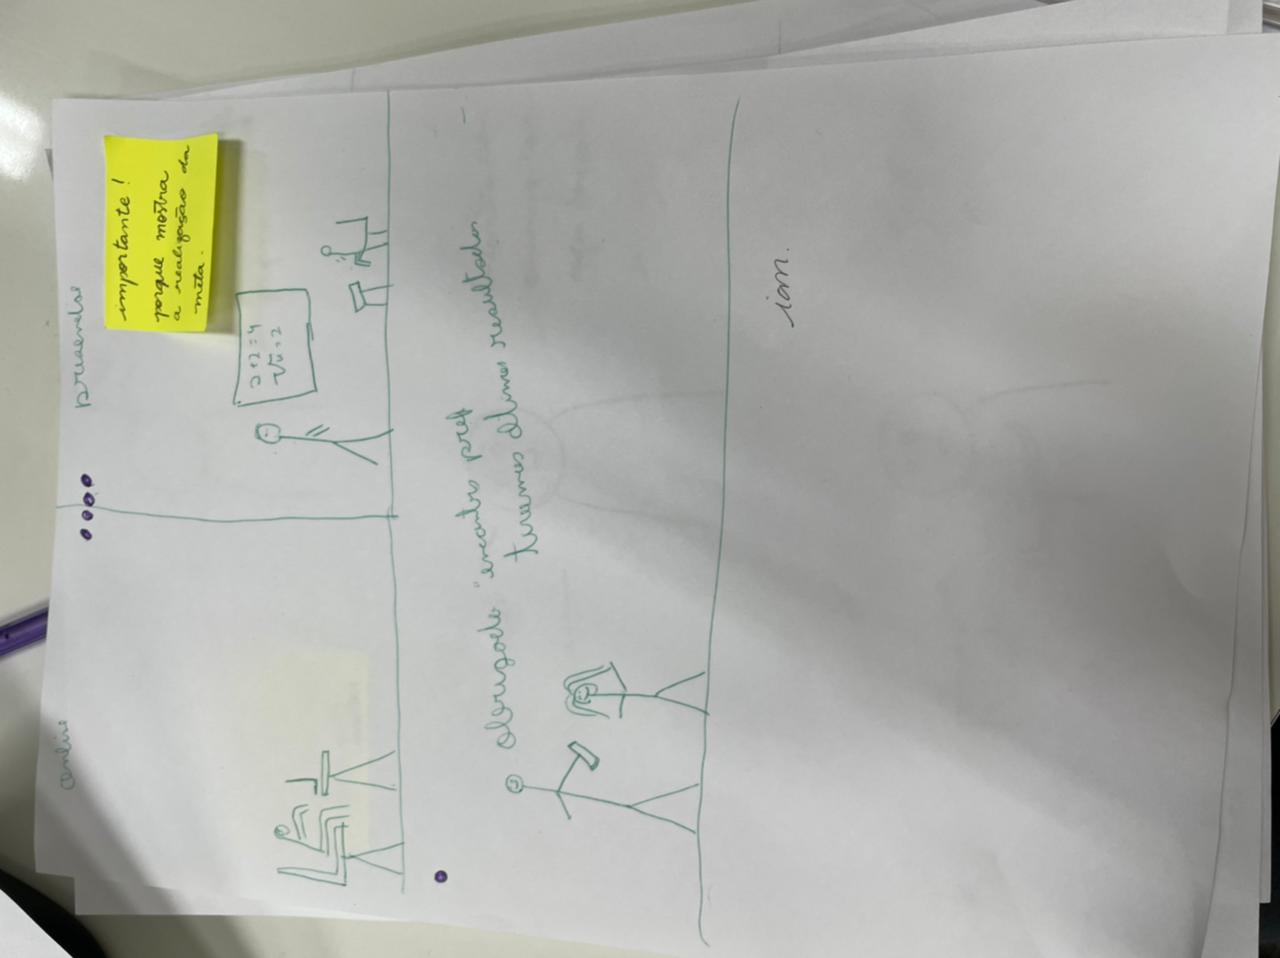 online
presencial
importante!
porque mostra
a realização da
meta.
2+2=4
√4=2
obrigado "encontre prof
tiramos ótimos resultados
ian.